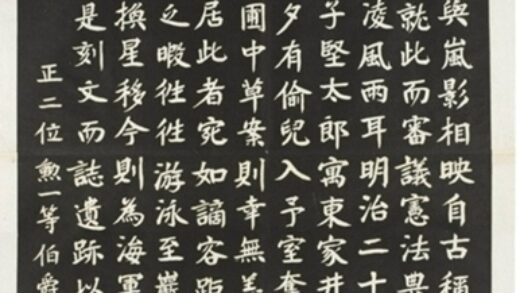 與嵐影相映自古稱
就此而審議憲法典
凌風雨耳明治二十
子堅太郎寓東家井
夕有偷兒入予室奪
圃中草案則幸無恙
居此者宛如謫客距
之暇徃徃游泳至巖
換星移今則為海軍
是刻文而誌遺跡以
正二位勲一等伯爵